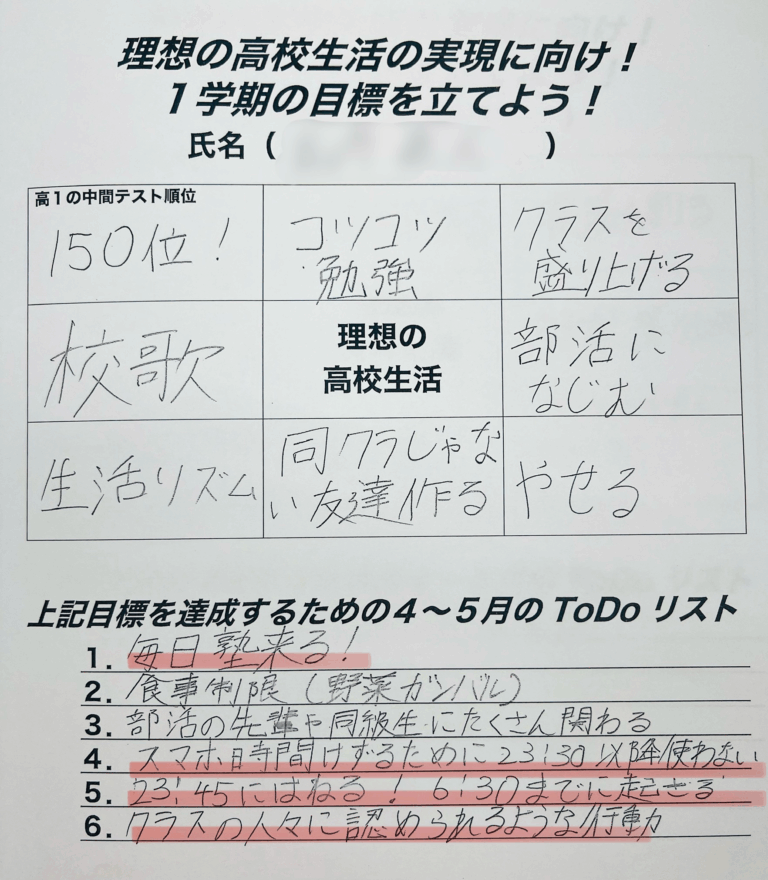 理想の高校生活の実現に向け！
1学期の目標を立てよう！
氏名（　　　　）
高1の中間テスト順位
150位！
コツコツ
勉強
クラスを
盛り上げる
校歌
理想の
高校生活
部活に
なじむ
生活リズム
同クラじゃな
い友達作る
やせる
上記目標を達成するための4〜5月のToDoリスト
1. 毎日塾来る！
2. 食事制限（野菜ガンバル）
3. 部活の先輩や同級生にたくさん関わる
4. スマホ時間けずるために23:30以降使わない
5. 23:45にはねる！ 6:30までに起きる
6. クラスの人々に認められるような行動